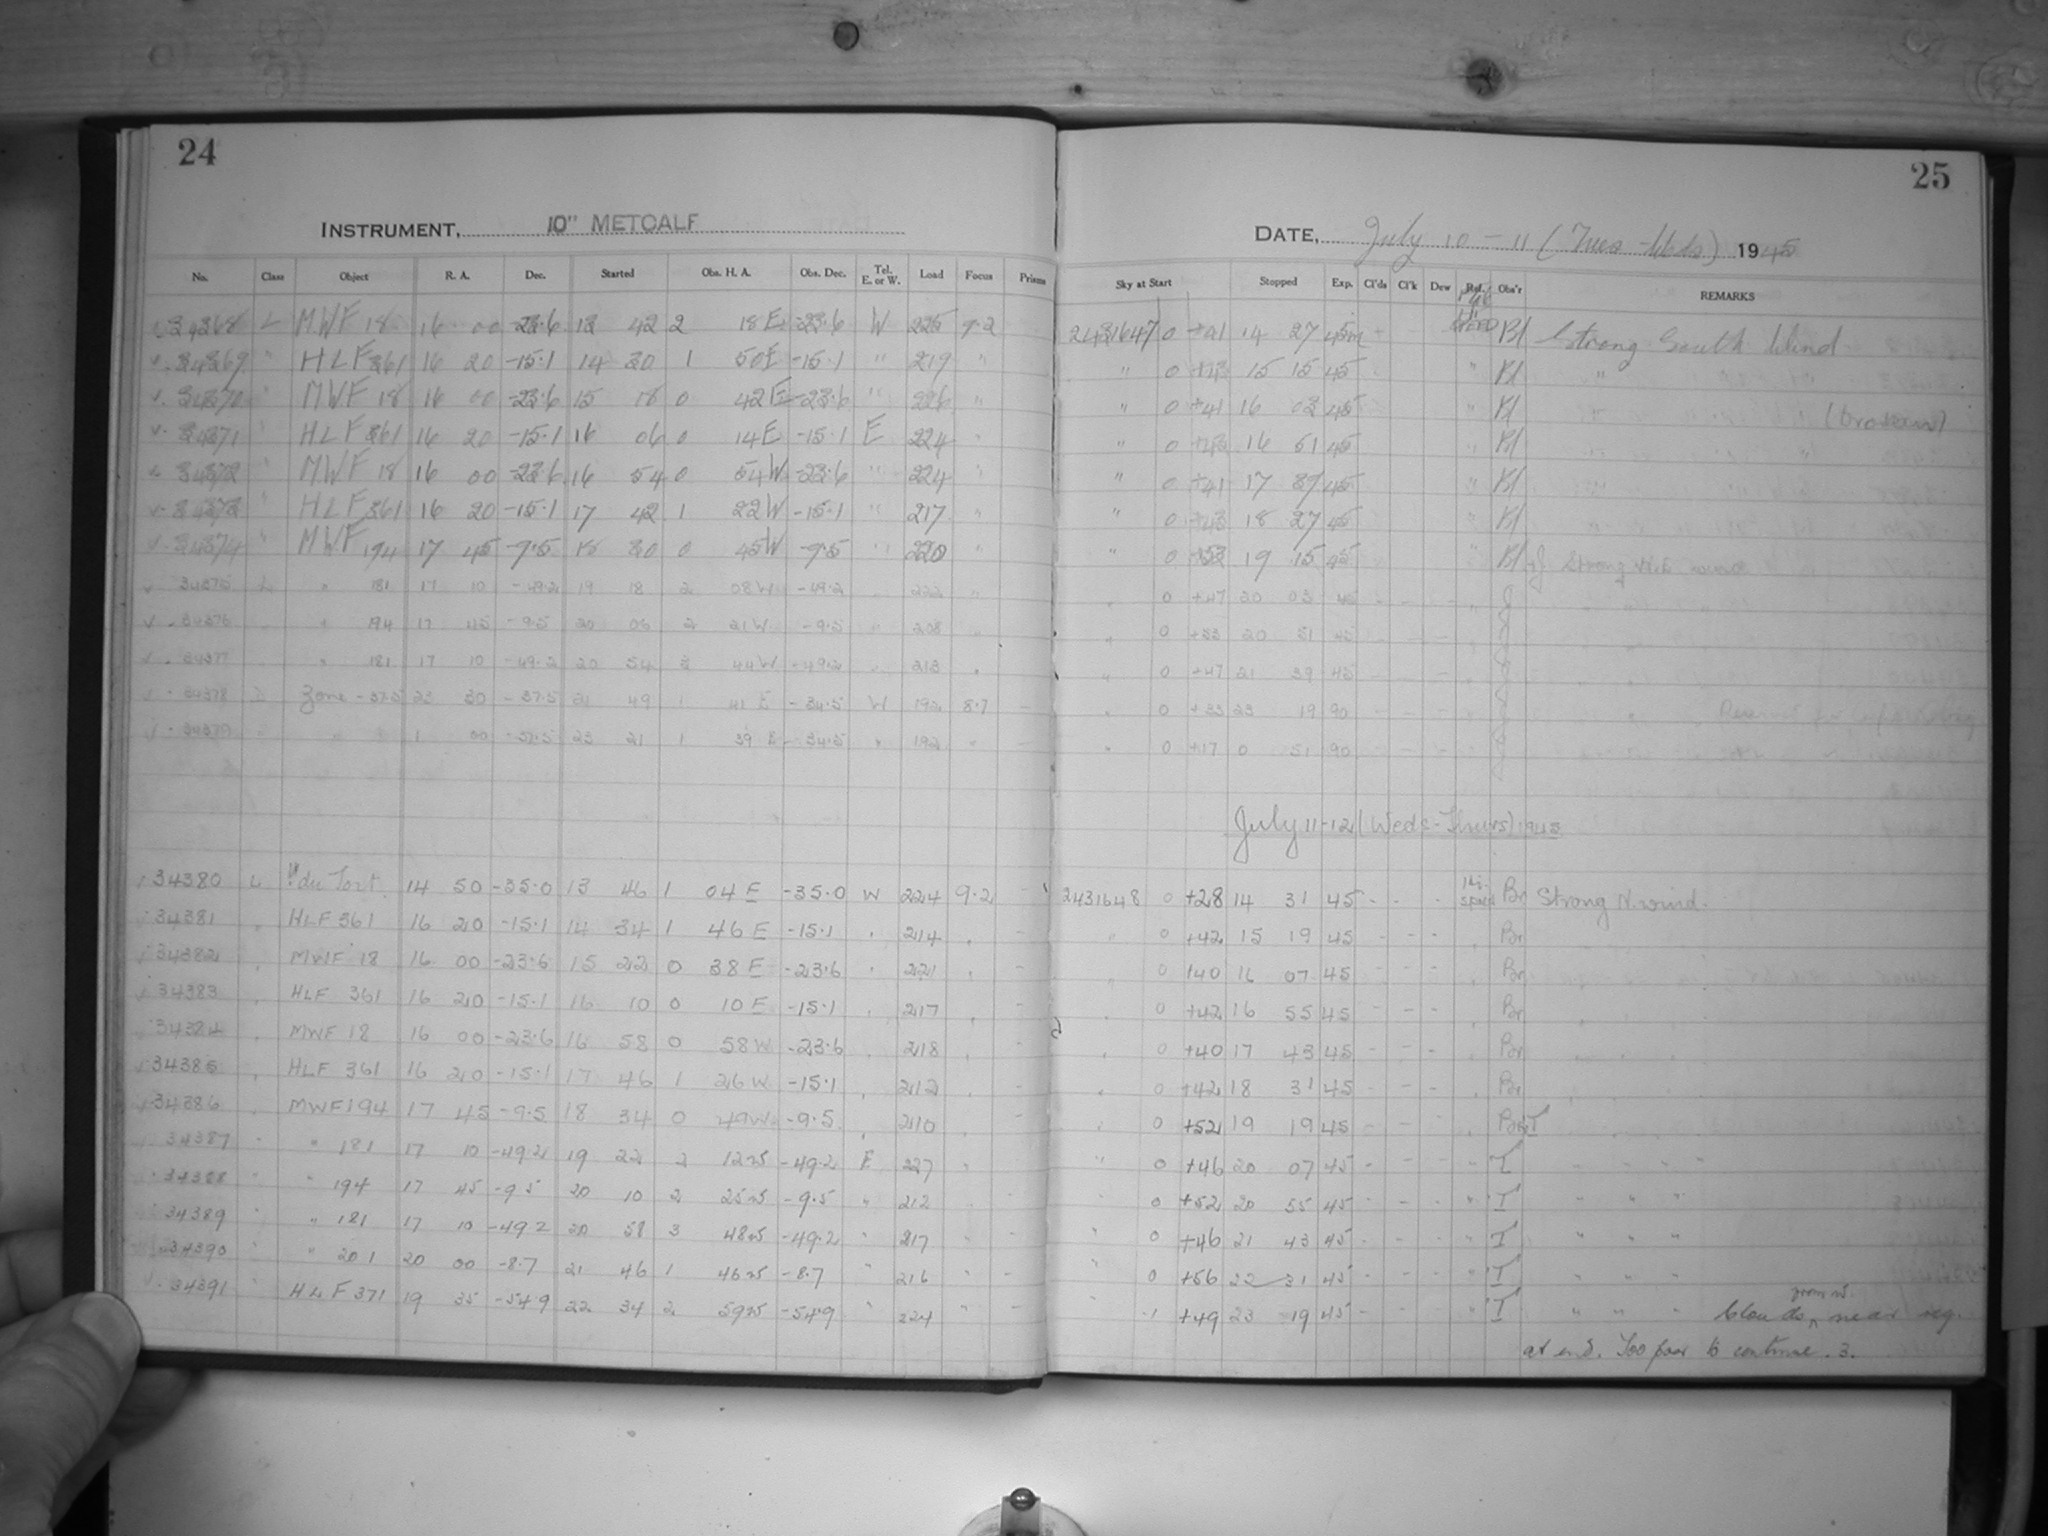 24
INSTRUMENT, 10" METCALF
No. Class Object R. A. Dec. Started Obs. H. A. Obs. Dec. Tel. E. or W. Load Focus Prisms
34368 L MWF 18 16 00 -23.6 13 42 2 18 E -23.6 W 225 9.2
34369 " HLF 361 16 20 -15.1 14 30 1 50 E -15.1 " 219 "
34370 " MWF 18 16 00 -23.6 15 18 0 42 E -23.6 " 226 "
34371 " HLF 361 16 20 -15.1 16 06 0 14 E -15.1 E 224 "
34372 " MWF 18 16 00 -23.6 16 54 0 54 W -23.6 224 "
34373 " HLF 361 16 20 -15.1 17 42 1 22 W -15.1 " 217 "
34374 " MWF 194 17 45 -9.5 18 30 0 45 W -9.5 " 220 "
34375 L " 181 17 10 -49.2 19 18 2 08 W -49.2 222 "
34376 " 194 17 45 -9.5 20 06 2 21 W -9.5 " 208
34377 " 181 17 10 -49.2 20 54 3 44 W -49.2 213
34378 Zone -37.5 23 30 -37.5 21 49 1 41 E -34.5 W 192 8.7 -
34379 " 1 00 -37.5 23 21 1 39 E -34.5 " 192 " -
34380 L du Toit 14 50 -35.0 13 46 1 04 E -35.0 W 224 9.2 -
34381 " HLF 361 16 20 -15.1 14 34 1 46 E -15.1 " 214 " -
34382 " MWF 18 16 00 -23.6 15 22 0 38 E -23.6 " 221 " -
34383 " HLF 361 16 20 -15.1 16 10 0 10 E -15.1 " 217 " -
34384 " MWF 18 16 00 -23.6 16 58 0 58 W -23.6 " 218 " -
34385 " HLF 361 16 20 -15.1 17 46 1 26 W -15.1 " 212 " -
34386 " MWF 194 17 45 -9.5 18 34 0 49 W -9.5 " 210 " -
34387 " " 181 17 10 -49.2 19 22 2 12 W -49.2 E 227 " -
34388 " " 194 17 45 -9.5 20 10 2 25 W -9.5 " 212 " -
34389 " " 181 17 10 -49.2 20 58 3 48 W -49.2 " 217 " -
34390 " " 201 20 00 -8.7 21 46 1 46 W -8.7 " 216 " -
34391 " HLF 371 19 35 -54.9 22 34 2 59 W -54.9 " 224 " -
25
DATE, July 10-11 (Tues-Weds) 1945
Sky at Start Stopped Exp. Cl'ds Cl'k Dew Ref. Obs'r REMARKS
2431647 0 +41 14 27 45m Bl Strong South Wind
" 0 +43 15 15 45 " Bl "
" 0 +41 16 03 45 " Bl " (broken)
" 0 +43 16 51 45 " Bl
" 0 +41 17 39 45 " Bl
" 0 +43 18 27 45 " Bl
" 0 +53 19 15 45 " Bl+J Strong wind
" 0 +47 20 03 45 - - - " J
" 0 +53 20 51 45 - - - " J
" 0 +47 21 39 45 - - - " J
" 0 +33 23 19 90 - - - " J
" 0 +17 0 51 90 - - - " J
July 11-12 (Weds-Thurs) 1945
2431648 0 +28 14 31 45 - - - Hi-speed Br Strong N. wind.
" 0 +42 15 19 45 - - - " Br
" 0 +40 16 07 45 - - - " Br
" 0 +42 16 55 45 - - - " Br
" 0 +40 17 43 45 - - - " Br
" 0 +42 18 31 45 - - - " Br
" 0 +52 19 19 45 - - - " Br+T
" 0 +46 20 07 45 - - - " T " " "
" 0 +52 20 55 45 - - - " T " " "
" 0 +46 21 43 45 - - - " T " " "
" 0 +56 22 31 45 - - - " T " " "
" -1 +49 23 19 45 - - - " T " " " Clouds from W. near reg.
at end. Too poor to continue. 3.